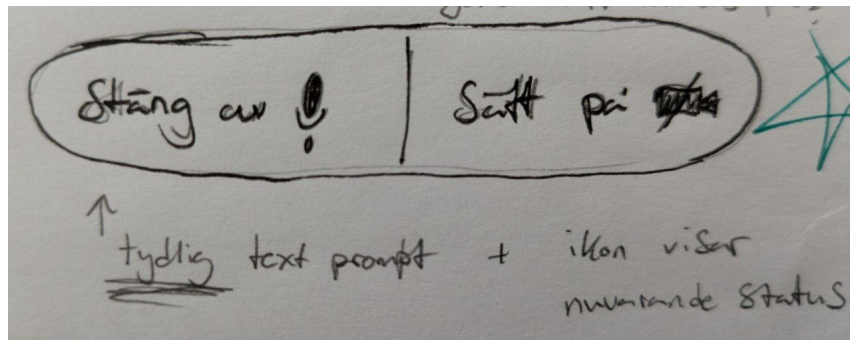 Stäng av
Sätt på
tydlig text prompt + ikon visar
nuvarande status